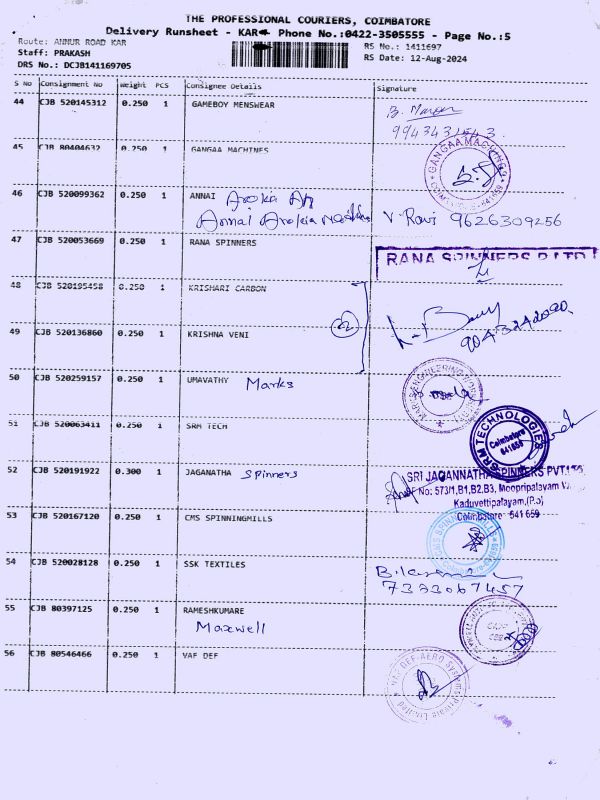 THE PROFESSIONAL COURIERS, COIMBATORE
Delivery Runsheet - KAR Phone No.:0422-3505555 - Page No.:5
Route: ANNUR ROAD KAR
RS No.: 1411697
Staff: PRAKASH
RS Date: 12-Aug-2024
DRS No.: DCJB141169705
S No Consignment No Weight PCS Consignee Details Signature
44 CJB 520145312 0.250 1 GAMEBOY MENSWEAR
45 CJB 80404632 0.250 1 GANGAA MACHINES
GANGAA MACHINES
46 CJB 520099362 0.250 1 ANNAI Arokia
Annai Arokia V. Ravi 9626309256
47 CJB 520053669 0.250 1 RANA SPINNERS
RANA SPINNERS P LTD
48 CJB 520195458 0.250 1 KRISHARI CARBON
02
9043242090
49 CJB 520136860 0.250 1 KRISHNA VENI
50 CJB 520259157 0.250 1 UMAVATHY Marks
51 CJB 520063411 0.250 1 SRM TECH
SRM TECHNOLOGIES
Coimbatore
641659
52 CJB 520191922 0.300 1 JAGANATHA Spinners
SRI JAGANNATHA SPINNERS PVT LTD
SF No: 573/1,B1,B2,B3, Moopripalayam
Kaduvettipalayam,(P.o)
Coimbatore 541 659
53 CJB 520167120 0.250 1 CMS SPINNINGMILLS
54 CJB 520028128 0.250 1 SSK TEXTILES
7333067457
55 CJB 80397125 0.250 1 RAMESHKUMARE
Maxwell
56 CJB 80546466 0.250 1 VAF DEF
VAF DEF-AERO Systems Private Limited